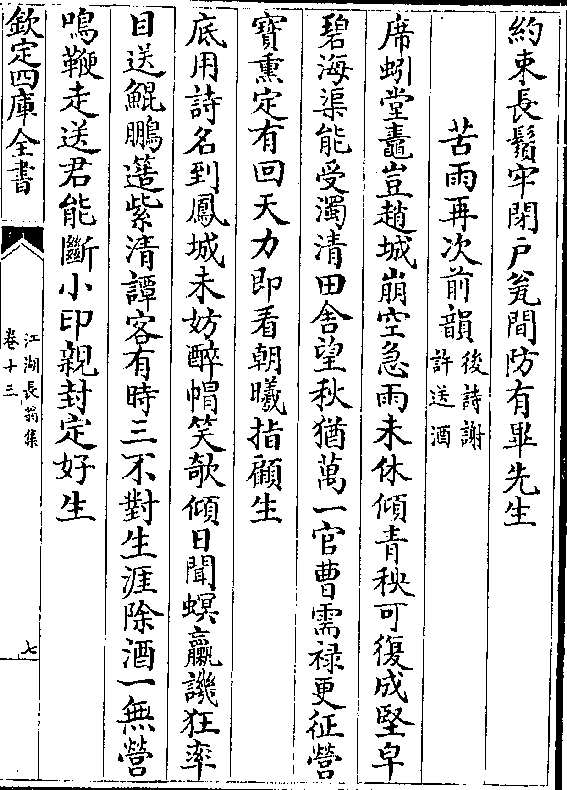 約束長鬚牢閉戸瓮間防有畢先生
苦雨再次前韻後詩謝許送酒
席蚓堂鼃豈趙城崩空急雨未休傾青秧可復成堅皁
碧海渠能受濁清田舍望秋猶萬一官曹需禄更征營
寳熏定有回天力即看朝曦指顧生
底用詩名到鳳城未妨醉㡌笑欹傾日聞螟蠃譏狂率
目送鯤鵬簉紫清譚客有時三不對生涯除酒一無營
鳴鞭走送君能斷小印親封定好生
欽定四庫全書
江湖長翁集
卷十三
七